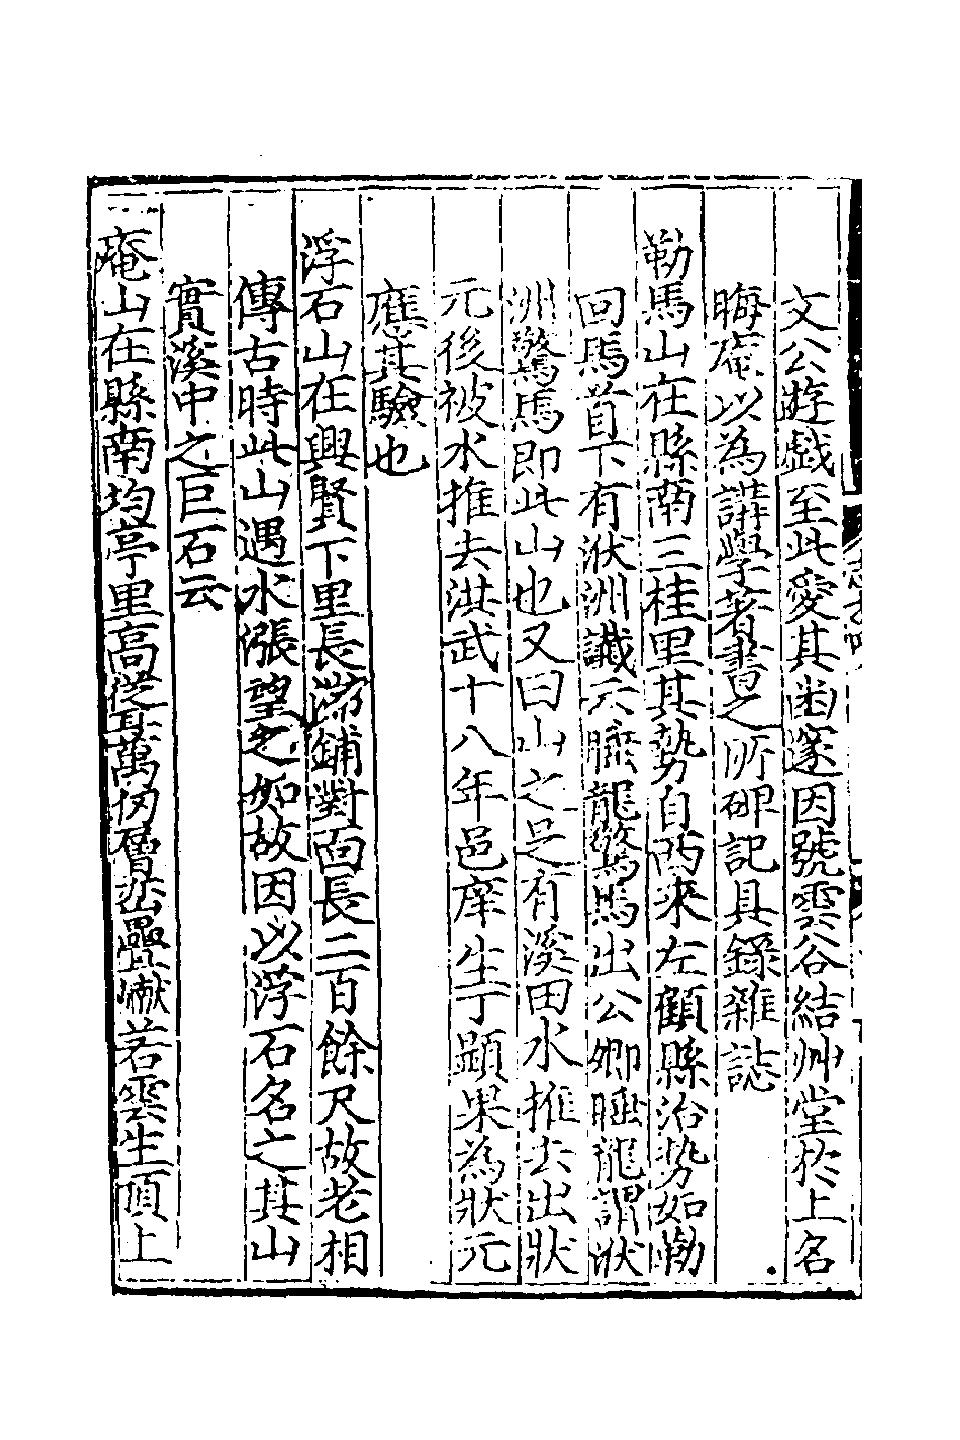 文公遊戲至此愛其幽邃因號雲谷結艸堂於上名
晦庵以為講學著書之所碑記具錄雜誌
勒馬山在縣南三桂里其勢自西來左顧縣治勢如勒
回馬首下有洑洲讖云睡龍驚馬出公卿睡龍謂洑
洲驚馬即此山也又曰山之足有溪田水推去出狀
元後被水推去洪武十八年邑庠生丁顯果為狀元
應其驗也
浮石山在興賢下里長滯鋪對面長二百餘尺故老相
傳古時此山遇水漲望之如故因以浮石名之其山
實溪中之巨石云
庵山在縣南均亭里高從耳萬仞層巒疊巘若雲生頂上